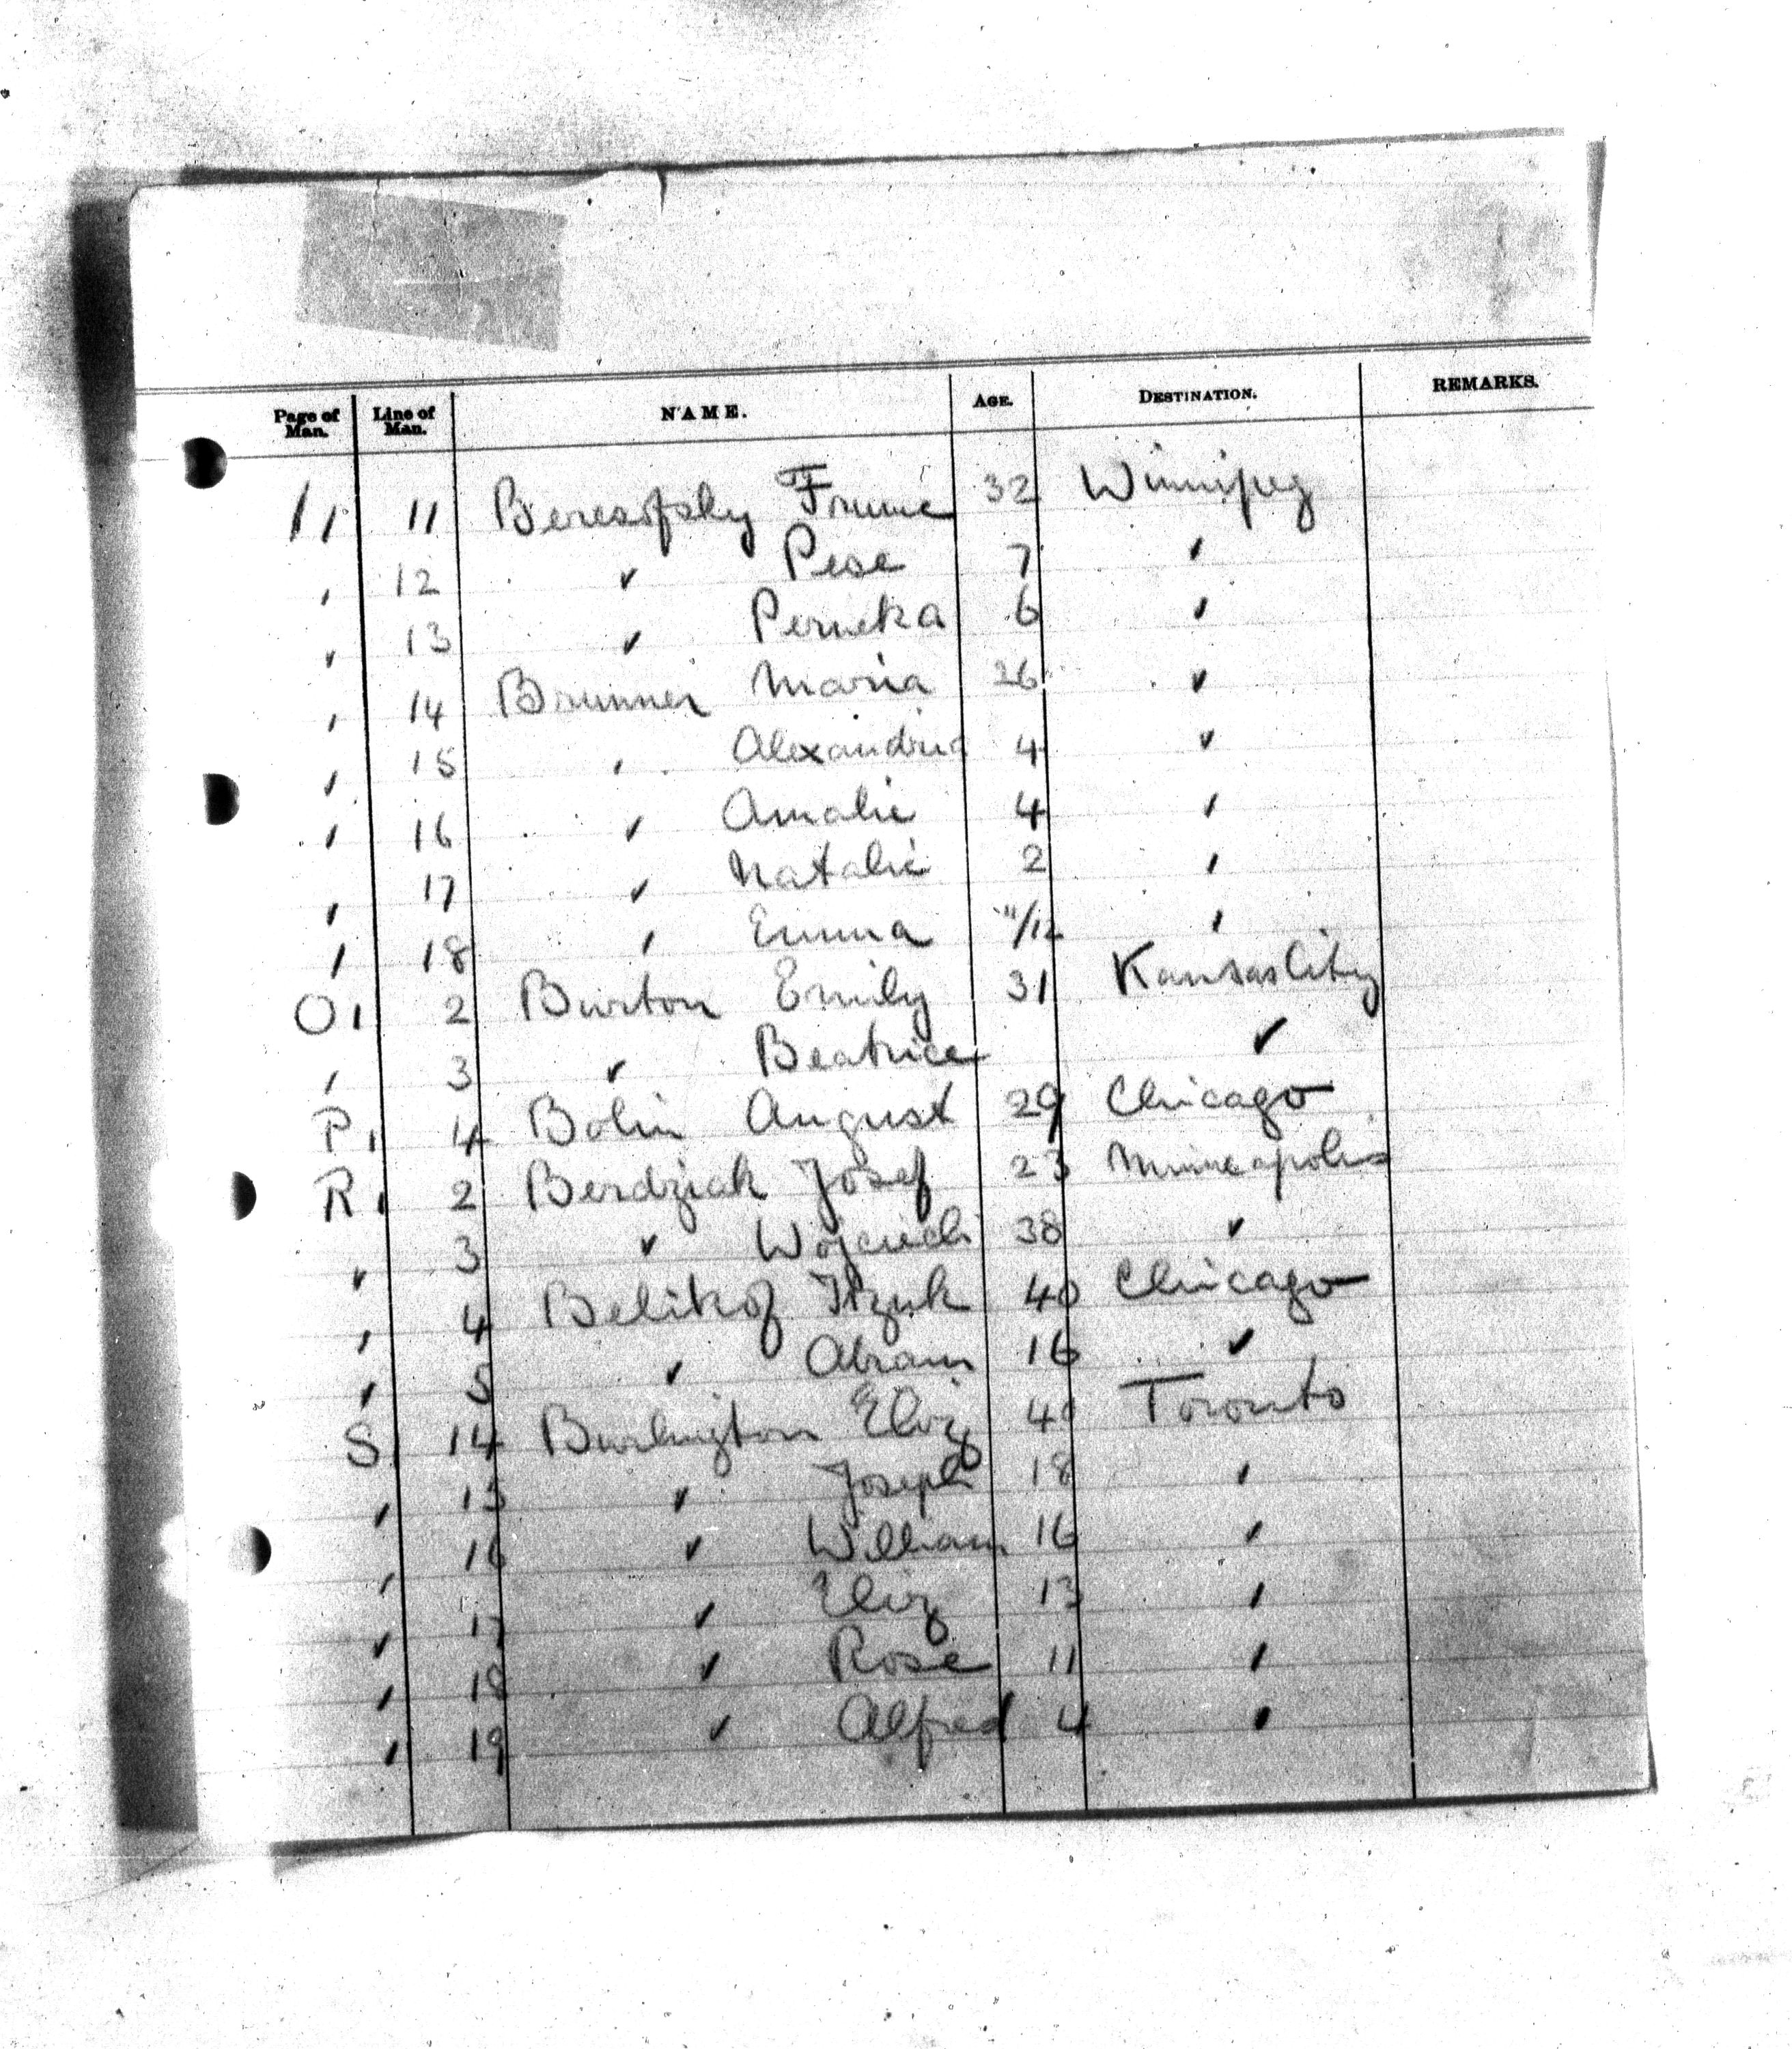 Page of Man. Line of Man. NAME. AGE. DESTINATION. REMARKS.
11 11 Beresofsky Frume 32 Winnipeg
" 12 " Pese 7 "
" 13 " Perucka 6 "
" 14 Brunner Maria 26 "
" 15 " Alexandria 4 "
" 16 " Amalie 4 "
" 17 " Natalie 2 "
" 18 " Emma 11/12 "
O1 2 Burton Emily 31 Kansas City
" 3 " Beatrice "
P1 4 Bolin August 29 Chicago
R1 2 Berdziak Josef 23 Minneapolis
" 3 " Wojciech 38 "
" 4 Belikof Itzuk 40 Chicago
" 5 " Abram 16 "
S1 14 Burlington Eliz 40 Toronto
" 15 " Joseph 18 "
" 16 " William 16 "
" 17 " Eliz 13 "
" 18 " Rose 11 "
" 19 " Alfred 4 "